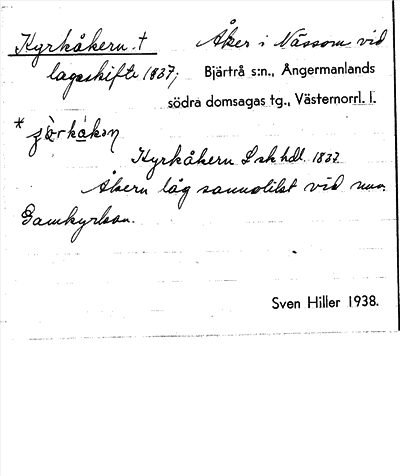 Kyrkåkern. † Åker i Nässom vid
lagaskifte 1837; Bjärtrå s:n., Ångermanlands
södra domsagas tg., Västernorrl. l.
Kyrkåkern L sk hdl. 1837
Åkern låg sannolikt vid nuv.
Gamkyrkan.
Sven Hiller 1938.